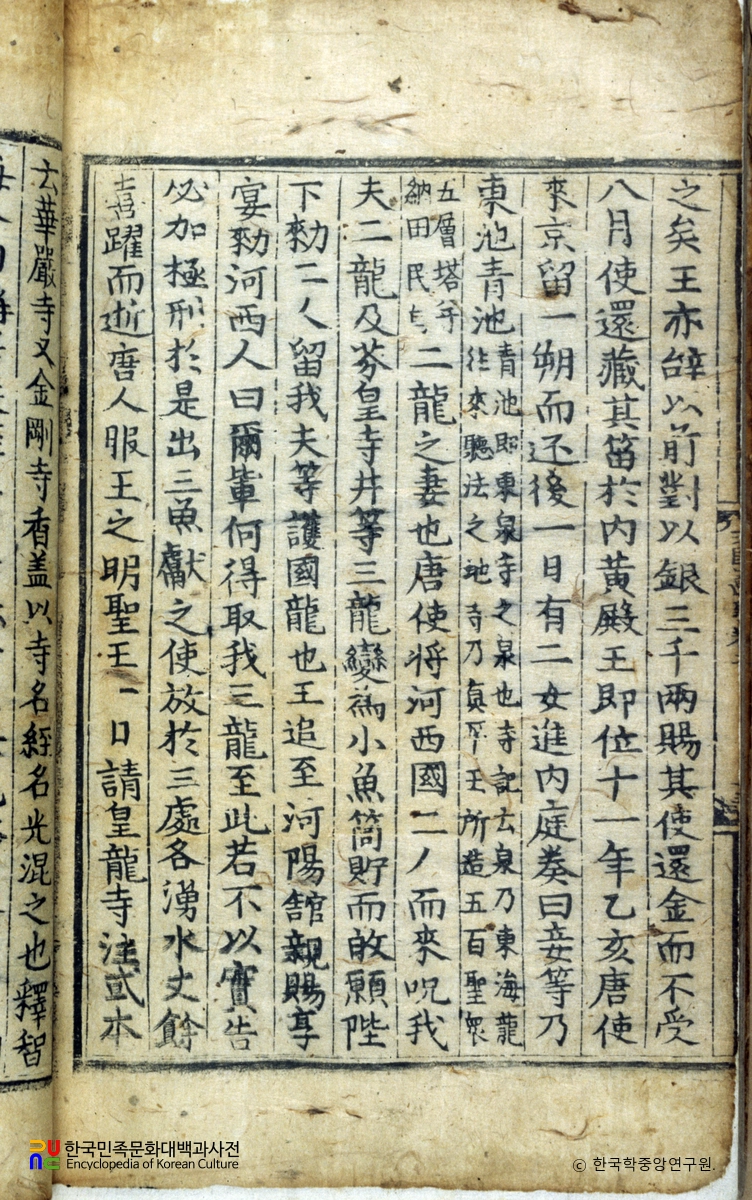 之矣王亦辝以前對以銀三千兩賜其使還金而不受
八月使還藏其笛於内黄殿王即位十一年乙亥唐使
來京留一朔而还後一日有二女進内庭奏曰妾等乃
東池青池
青池即東泉寺之泉也寺記云泉乃東海龍
徃來聽法之地寺乃真平王所造五百聖衆
五層塔并
納田民
二龍之妻也唐使將河西國二人而來呪我
夫二龍及芬皇寺井等三龍變為小魚筒貯而故願陛
下勑二人留我夫等護國龍也王追至河陽舘親賜享
宴勑河西人曰爾軰何得取我三龍至此若不以實告
必加極刑於是出三魚獻之使放於三處各湧水丈餘
喜躍而逝唐人服王之明聖王一日請皇龍寺注或本
云華嚴寺又金剛寺香盖以寺名経名光混之也釋智
한국민족문화대백과사전
Encyclopedia of Korean Culture
© 한국학중앙연구원.